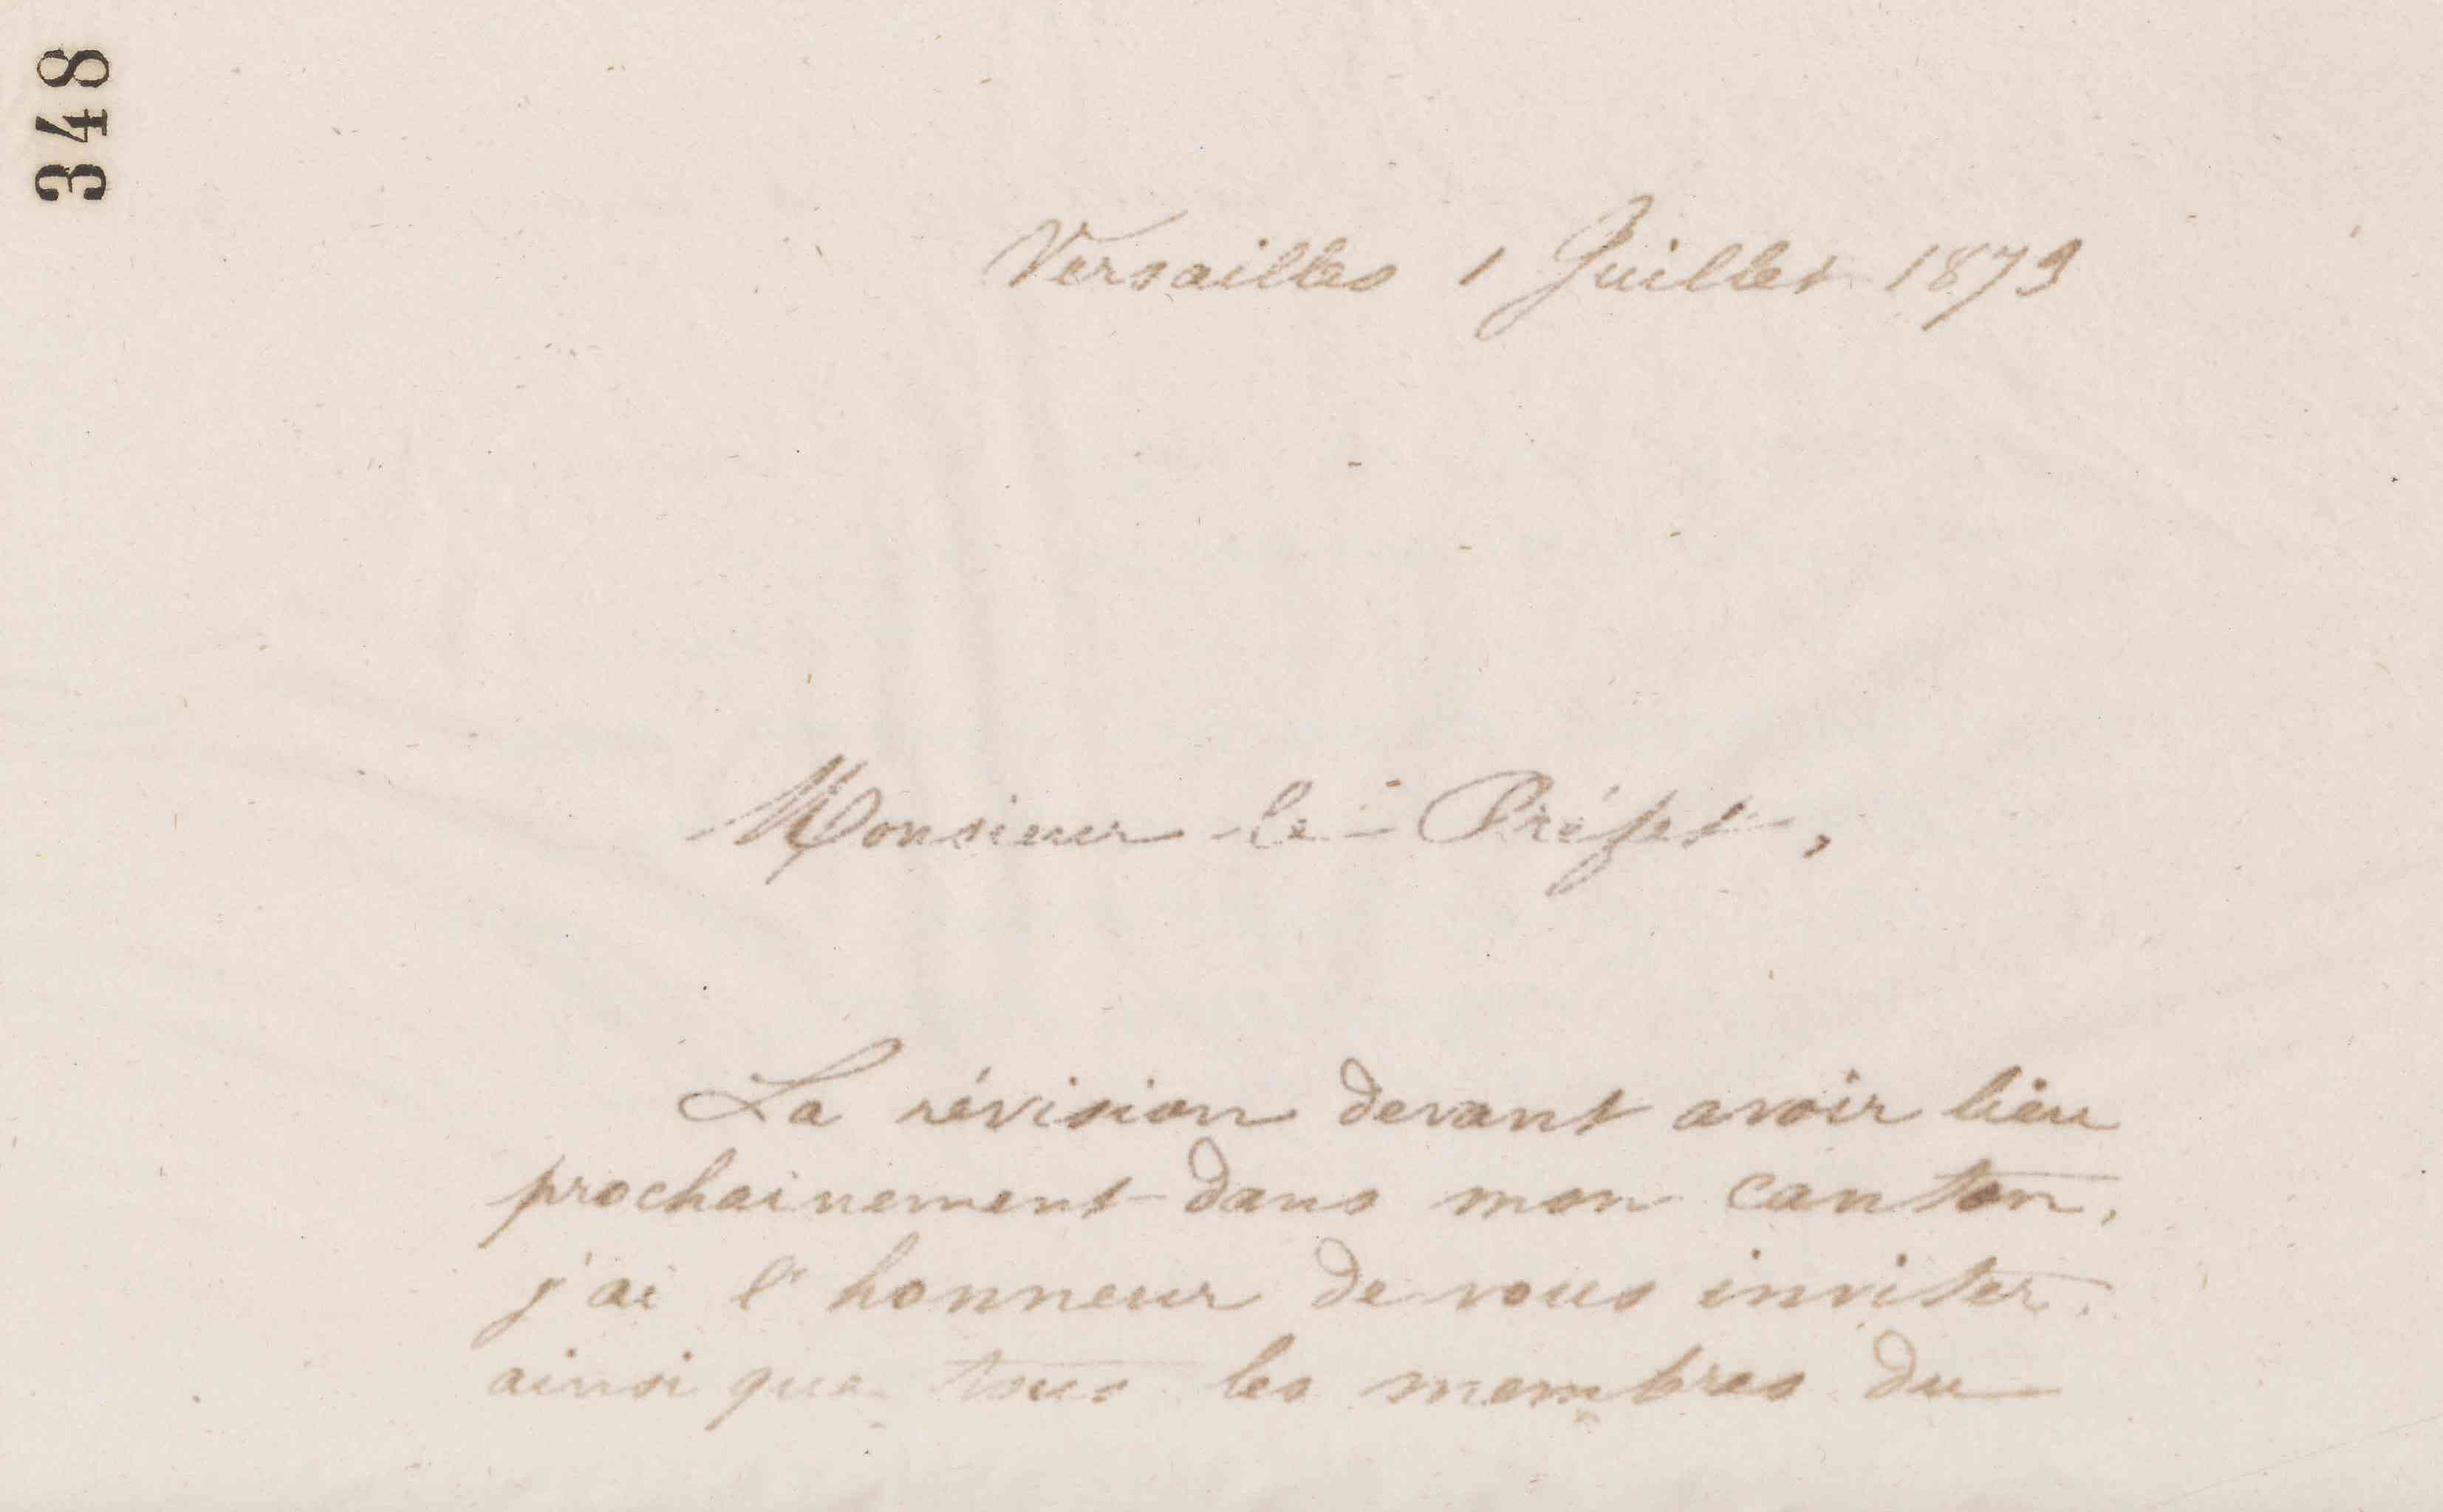 348
Versailles 1 Juillet 1873
Monsieur le Préfet,
La révision devant avoir lieu
prochainement dans mon canton,
j'ai l'honneur de vous inviter,
ainsi que tous les membres du